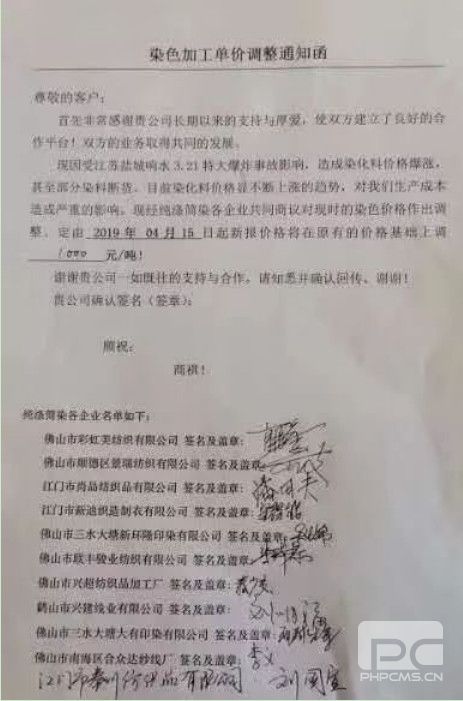 染色加工单价调整通知函
尊敬的客户：
首先非常感谢贵公司长期以来的支持与厚爱，使双方建立了良好的合
作平台！双方的业务取得共同的发展。
现因受江苏盐城响水 3.21 特大爆炸事故影响，造成染化料价格爆涨，
甚至部分染料断货。目前染化料价格显不断上涨的趋势，对我们生产成本
造成严重的影响。现经纯涤筒染各企业共同商议对现时的染色价格作出调
整。定由 2019 年 04 月 15 日起新报价格将在原有的价格基础上调
1000 元/吨！
谢谢贵公司一如既往的支持与合作。请知悉并确认回传、谢谢！
贵公司确认签名（签章）：
顺祝：
商祺！
纯涤筒染各企业名单如下：
佛山市彩虹美纺织有限公司 签名及盖章：
佛山市顺德区景瑞纺织有限公司 签名及盖章：
江门市尚品纺织品有限公司 签名及盖章：
江门市新迪织造制衣有限公司 签名及盖章：
佛山市三水大塘新环隆印染有限公司 签名及盖章：
佛山市联丰骏业纺织有限公司 签名及盖章：
佛山市兴超纺织品加工厂 签名及盖章：
鹤山市兴建线业有限公司 签名及盖章：
佛山市三水大塘大有印染有限公司 签名及盖章：
佛山市南海区合众达纱线厂 签名及盖章： 李义
江门市泰川纺织品有限公司 刘国坚
PC
PHPCMS.CN